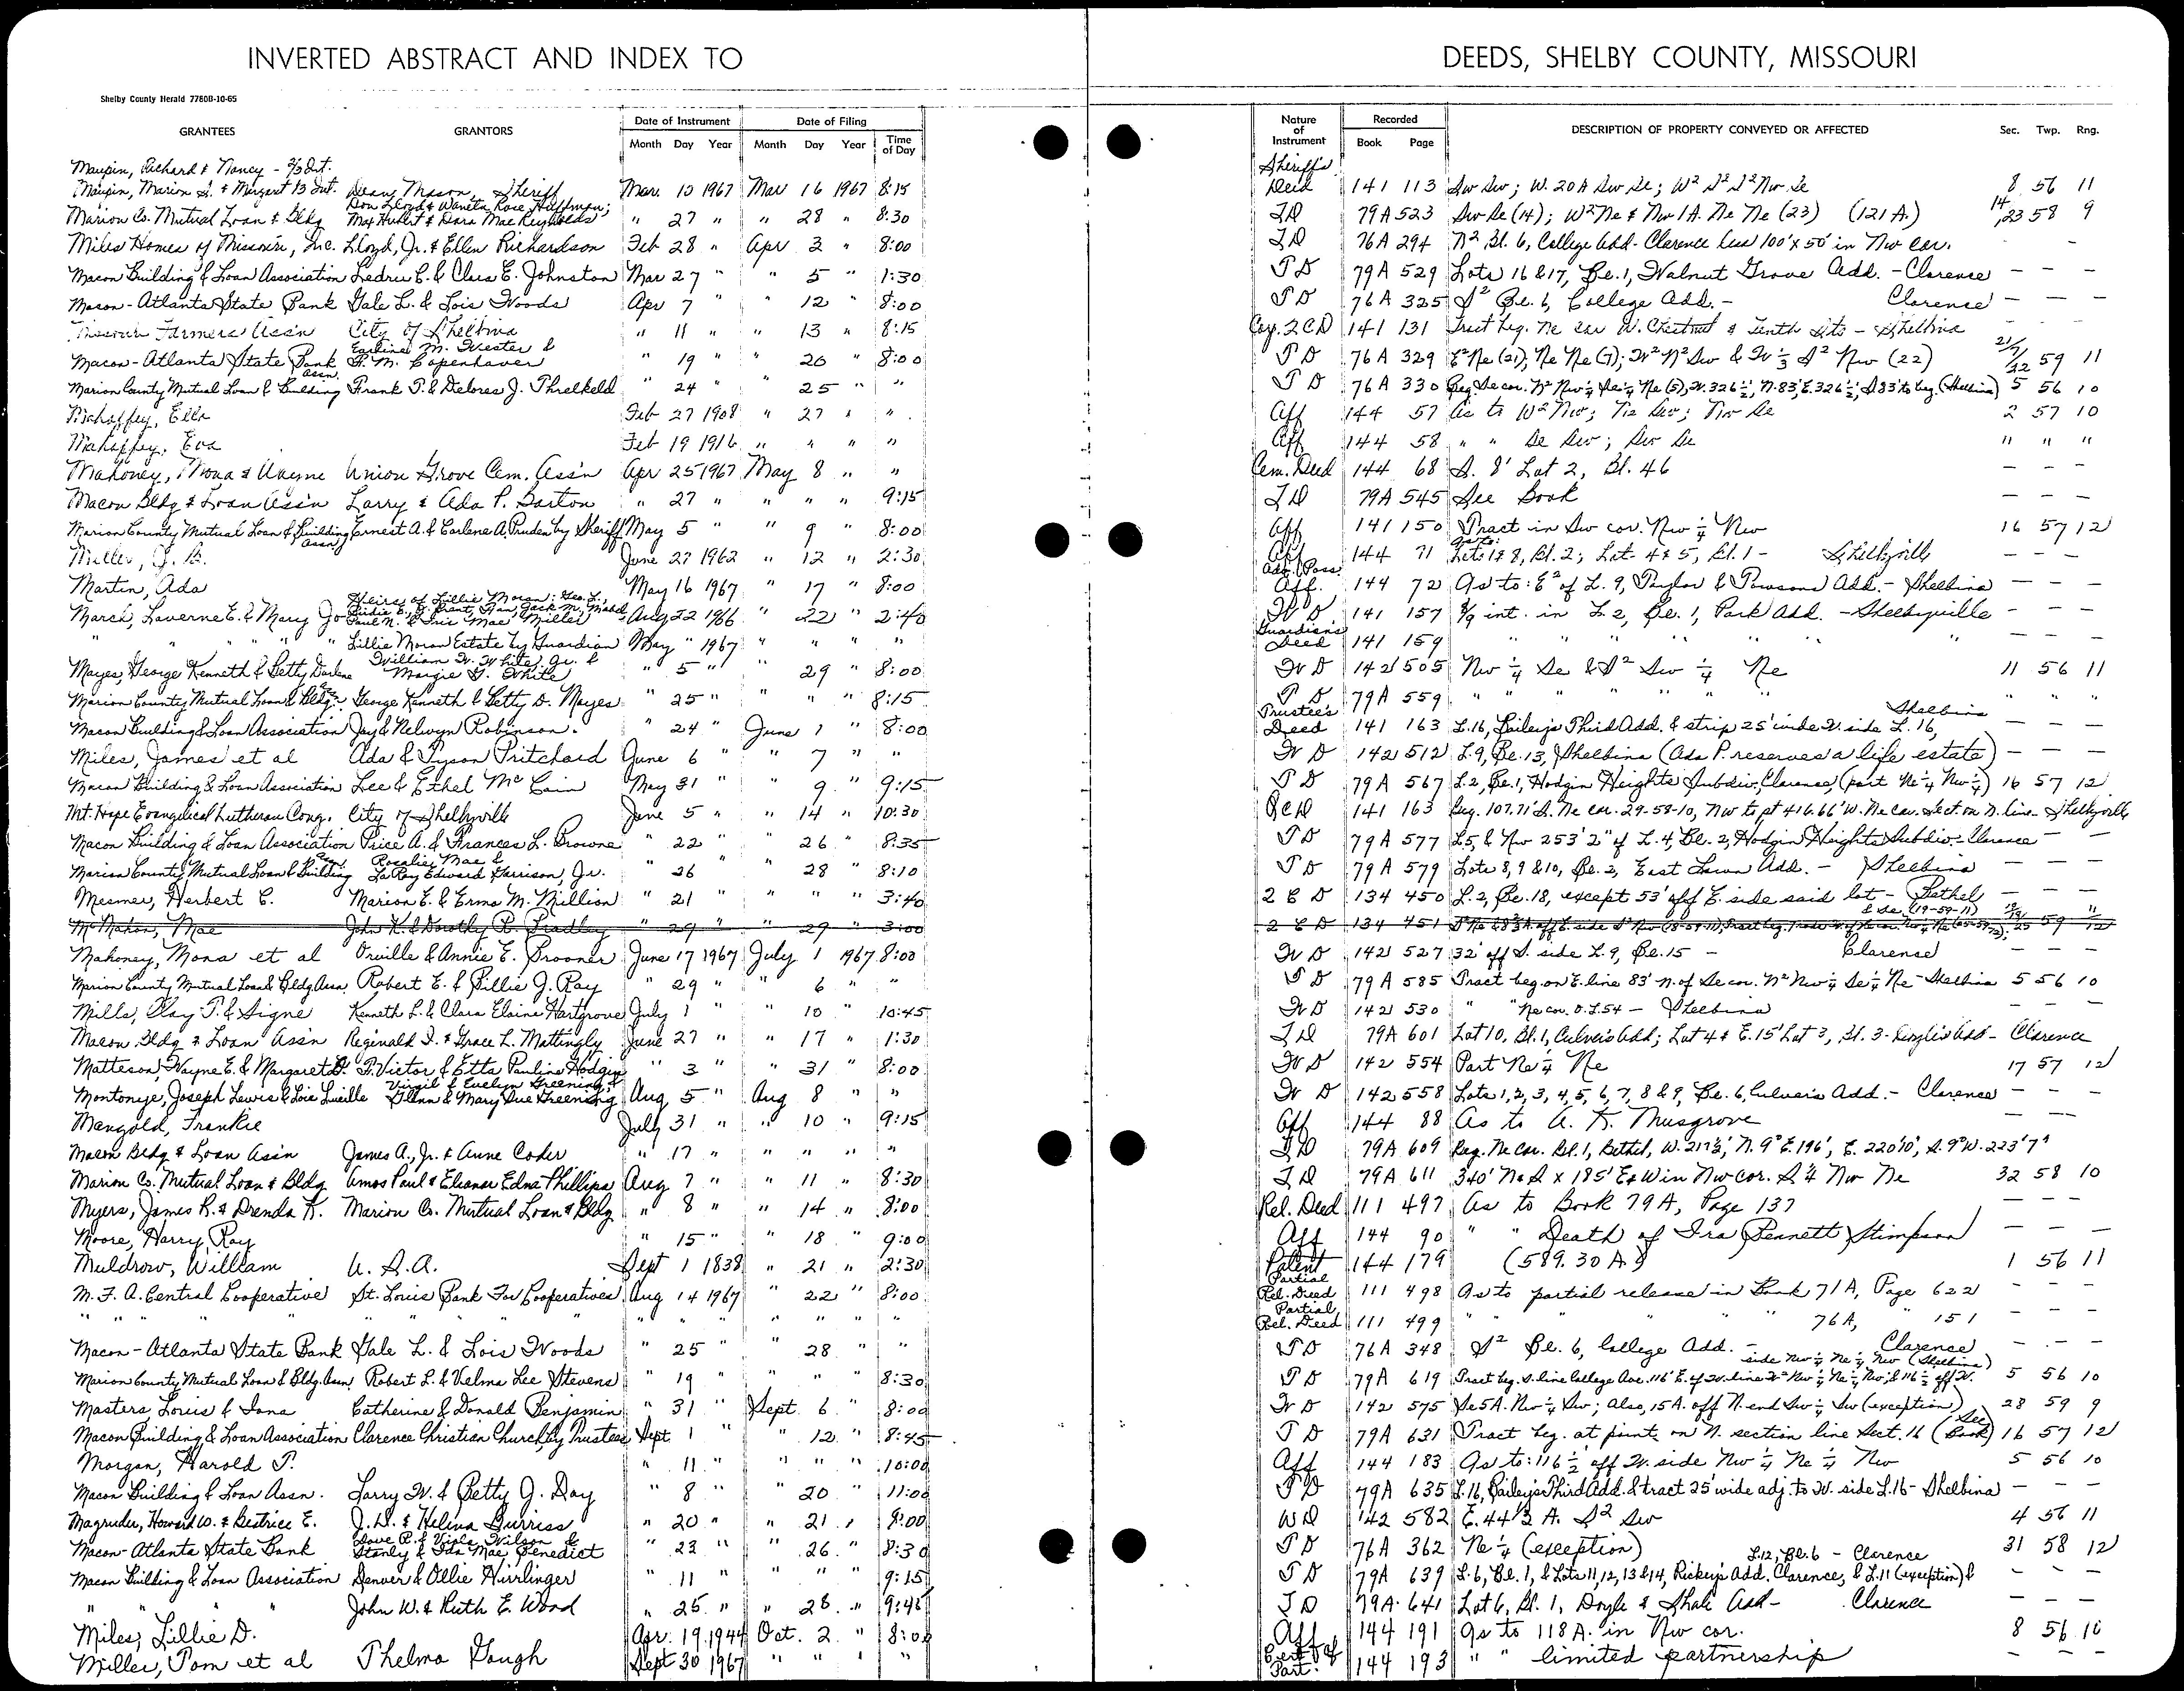 INVERTED ABSTRACT AND INDEX TO DEEDS, SHELBY COUNTY, MISSOURI
Shelby County Herald 7780B-10-65
GRANTEES GRANTORS Date of Instrument Date of Filing Nature of Instrument Recorded DESCRIPTION OF PROPERTY CONVEYED OR AFFECTED Sec. Twp. Rng.
Month Day Year Month Day Year Time of Day Book Page
Maupin, Richard & Nancy - 2/3 Int. Sheriff's
Maupin, Marion S. & Margaret 1/3 Int. Deany Mason, Sheriff Mar. 10 1967 Mar 16 1967 8:15 Deed 141 113 Sw Sw; W. 20A Sw Se; W² S² S² Nw Se 8 56 11
Don Lloyd & Waneta Rose Huffman;
Marion Co. Mutual Loan & Bldg Max Hulet & Dora Mae Reynolds " 27 " " 28 " 8:30 T D 79A 523 Sw Se (14); W² Ne & Nw 1A. Ne Ne (23) (121 A.) 14,23 58 9
Miles Homes of Missouri, Inc. Lloyd, Jr. & Ellen Richardson Feb 28 " Apr 3 " 8:00 T D 76A 294 N² Bl. 6, College Add- Clarence less 100' x 50' in Nw cor. - -
Macon Building & Loan Association Ledru C. & Clara E. Johnston Mar 27 " " 5 " 1:30 T D 79A 529 Lots 16 & 17, Bl. 1, Walnut Grove Add. - Clarence - - -
Macon-Atlanta State Bank Gale L. & Lois Woods Apr 7 " " 12 " 8:00 T D 76A 325 S² Bl. 6, College Add. - Clarence - - -
Missouri Farmers Ass'n City of Shelbina " 11 " " 13 " 8:15 Coy. 2 C D 141 131 Tract beg. Ne cor W. Chestnut & Tenth Sts - Shelbina - - -
Earline M. Wester &
Macon-Atlanta State Bank H. M. Copenhaver " 19 " " 20 " 8:00 T D 76A 329 E² Ne (21); Ne Ne (7); W² N² Sw & W 1/3 S² Nw (22) 21/7/22 59 11
Marion County Mutual Loan & Building Assn. Frank T. & Delores J. Threlkeld " 24 " " 25 " " T D 76A 330 Beg. Se cor. N² Nw¼ Se¼ Ne (5), W. 326½', N. 83', E. 326½', S. 83' to beg. (Shelbina) 5 56 10
Mahaffey, Ella Feb 27 1908 " 27 " " Aff 144 57 As to W² Nw; Ne Sw; Nw Se 2 57 10
Mahaffey, Eva Feb 19 1916 " " " " Aff 144 58 " " Se Sw; Sw Se " " "
Mahoney, Mona & Wayne Union Grove Cem. Ass'n Apr 25 1967 May 8 " " Cem. Deed 144 68 S. 8' Lot 2, Bl. 46 - - -
Macon Bldg & Loan Ass'n Larry & Ada P. Barton " 27 " " " " 9:15 T D 79A 545 See Book - - -
Marion County Mutual Loan & Building Assn. Ernest A. & Carlene A. Pruden by Sheriff May 5 " " 9 " 8:00 Aff 141 150 Tract in Sw cor. Nw ¼ Nw 16 57 12
Miller, J. B. June 27 1962 " 12 " 2:30 Aff 144 71 As to: Lots 1 & 8, Bl. 2; Lot 4 & 5, Bl. 1 - Shelbyville - - -
Martin, Ada May 16 1967 " 17 " 8:00 Adv. Poss. Aff. 144 72 As to: E² of L. 9, Taylor & Towsons Add. - Shelbina - - -
Heirs of Lillie Moran: Geo. L.,
March, Laverne E. & Mary Jo Paul N. & Iris Mae Miller Aug 22 1966 " 22 " 2:40 W D 141 157 8/9 int. in L. 2, Bl. 1, Park Add. - Shelbyville - - -
" " " " Lillie Moran Estate by Guardian May " 1967 " " " " Guardian's Deed 141 159 " " " " " " - - -
William W. White, Jr. &
Mayes, George Kenneth & Betty Darlene Margie G. White " 5 " " 29 " 8:00 W D 142 505 Nw ¼ Se & S² Sw ¼ Ne 11 56 11
Marion County Mutual Loan & Bldg. Assn. George Kenneth & Betty D. Mayes " 25 " " " " 8:15 T D 79A 559 " " " " " " " " "
Macon Building & Loan Association Jay & Nelwyn Robinson. " 24 " June 1 " 8:00 Trustee's Deed 141 163 L. 16, Bailey's Third Add. & strip 25' wide W. side L. 16, Shelbina - - -
Miles, James et al Ada & Tyson Pritchard June 6 " " 7 " " W D 142 512 L. 9, Bl. 13, Shelbina (Ada P. reserves a life estate) - - -
Macon Building & Loan Association Lee & Ethel McCain May 31 " " 9 " 9:15 T D 79A 567 L. 2, Bl. 1, Hodgin Heights Subdiv., Clarence, (part Ne ¼ Nw ¼) 16 57 12
Mt. Hope Evangelical Lutheran Cong. City of Shelbyville June 5 " " 14 " 10:30 Q C D 141 163 Beg. 107.71' S. Ne cor. 29-58-10, Nw to pt 416.66' W. Ne cor. Sect. on N. line - Shelbyville
Macon Building & Loan Association Price A. & Frances L. Browne " 22 " " 26 " 8:35 T D 79A 577 L. 5, & Nw 253' 2" of L. 4, Bl. 2, Hodgin Heights Subdiv. - Clarence - -
Rosalie Mae &
Marion County Mutual Loan & Building Assn. LeRoy Edward Garrison, Jr. " 26 " 28 " 8:10 T D 79A 579 Lots 8, 9 & 10, Bl. 2, East Lawn Add. - Shelbina - - -
Mesmer, Herbert C. Marion E. & Erma M. Million " 21 " " " " 3:40 2 C D 134 450 L. 2, Bl. 18, except 53' off E. side said lot - Bethel - - -
McMahon, Mae John K. & Dorothy R. Bradley " 29 " " 29 " 3:00 2 C D 134 451
Mahoney, Mona et al Orville & Annie E. Prooner June 17 1967 July 1 1967 8:00 W D 142 527 32' off S. side L. 9, Bl. 15 - Clarence - - -
Marion County Mutual Loan & Bldg Assn. Robert E. & Billie J. Ray " 29 " " 6 " " T D 79A 585 Tract beg. on E. line 83' n. of Se cor. N² Nw¼ Se¼ Ne - Shelbina 5 56 10
Mills, Clay T. & Signe Kenneth L. & Clara Elaine Hartgrove July 1 " " 10 " 10:45 W D 142 530 " " Ne cor. O. L. 54 - Shelbina - - -
Macon Bldg & Loan Assn Reginald I. & Grace L. Mattingly June 27 " " 17 " 1:30 T D 79A 601 Lot 10, Bl. 1, Culver's Add; Lot 4 & E. 15' Lot 3, Bl. 3 - Add - Clarence
Matteson, Wayne E. & Margaret D. F. Victor & Etta Pauline Hodgin " 3 " " 31 " 8:00 W D 142 554 Part Ne ¼ Ne 17 57 12
Virgil & Evelyn Greening &
Montonye, Joseph Lewis & Lois Lucille Glenn & Mary Sue Greening Aug 5 " Aug 8 " " W D 142 558 Lots 1, 2, 3, 4, 5, 6, 7, 8 & 9, Bl. 6, Culver's Add. - Clarence - - -
Mangold, Frankie July 31 " " 10 " 9:15 Aff 144 88 As to A. K. Musgrove - - -
Macon Bldg & Loan Ass'n James A., Jr. & Anne Coder " 17 " " " " " T D 79A 609 Beg. Ne Cor. Bl. 1, Bethel, W. 217½', N. 9° E. 196', E. 220'10", S. 9° W. 223'7"
Marion Co. Mutual Loan & Bldg Amos Paul & Eleanor Edna Phillips Aug 7 " " 11 " 8:30 T D 79A 611 340' N & S x 185' E & W in Nw cor. S ¼ Nw Ne 32 58 10
Myers, James R. & Drenda K. Marion Co. Mutual Loan & Bldg " 8 " " 14 " 8:00 Rel. Deed 111 497 As to Book 79A, Page 137 - - -
Moore, Harry Roy " 15 " " 18 " 9:00 Aff 144 90 " " Death of Ira Bennett Stimpson - - -
Muldrow, William U. S. A. Sept 1 1838 " 21 " 2:30 Patent 144 179 (589.30 A.) 1 56 11
M. F. A. Central Cooperative St. Louis Bank For Cooperatives Aug 14 1967 " 22 " 8:00 Partial Rel. Deed 111 498 As to partial release in Book 71A, Page 622 - - -
" " " " " " " " " " " " " " Partial Rel. Deed 111 499 " " " " 76A, " 151 - - -
Macon-Atlanta State Bank Gale L. & Lois Woods " 25 " " 28 " " T D 76A 348 S² Bl. 6, College Add. - Clarence - - -
side Nw ¼ Ne ¼ Nw (Shelbina)
Marion County Mutual Loan & Bldg. Assn. Robert L. & Velma Lee Stevens " 19 " " " " 8:30 T D 79A 619 Tract beg. S. line College Ave. 116' E. of W. line W² Nw ¼ Ne ¼ Nw; & 116½' off W. 5 56 10
Masters, Louis & Iona Catherine & Donald Benjamin " 31 " Sept. 6 " 8:00 W D 142 575 Se 5A. Nw ¼ Sw; Also, 15 A. off N. end Sw ¼ Sw (exception) 28 59 9
Macon Building & Loan Association Clarence Christian Church by Trustees Sept. 1 " " 12 " 8:45 T D 79A 631 Tract beg. at point on N. section line Sect. 16 (See Book) 16 57 12
Morgan, Harold T. " 11 " " " " 10:00 Aff 144 183 As to: 116½' off W. side Nw ¼ Ne ¼ Nw 5 56 10
Macon Building & Loan Assn. Larry W. & Betty J. Day " 8 " " 20 " 11:00 T D 79A 635 L. 16, Bailey's Third Add. & tract 25' wide adj. to W. side L. 16 - Shelbina - - -
Magruder, Howard W. & Beatrice E. J. D. & Helena Burriss " 20 " " 21 " 8:00 W D 142 582 E. 44½ A. S² Sw 4 56 11
Dave P. & Viola Wilson &
Macon-Atlanta State Bank Stanly & Ida Mae Benedict " 23 " " 26 " 8:30 T D 76A 362 Ne ¼ (exception) 31 58 12
L. 12, Bl. 6 - Clarence
Macon Building & Loan Association Denver & Ollie Hirrlinger " 11 " " " " 9:15 T D 79A 639 L. 6, Bl. 1, & Lots 11, 12, 13 & 14, Rickey's Add. Clarence, & L. 11 (exception) & - - -
" " " John W. & Ruth E. Wood " 25 " " 28 " 9:45 T D 79A 641 Lot 6, Bl. 1, Doyle & Shale Add - Clarence - - -
Miles, Lillie D. Apr. 19 1944 Oct. 2 " 8:00 Aff 144 191 As to 118 A. in Nw cor. 8 56 10
Miller, Tom et al Thelma Gough Sept 30 1967 " " " " Cert. of Part. 144 193 " " limited partnership - - -